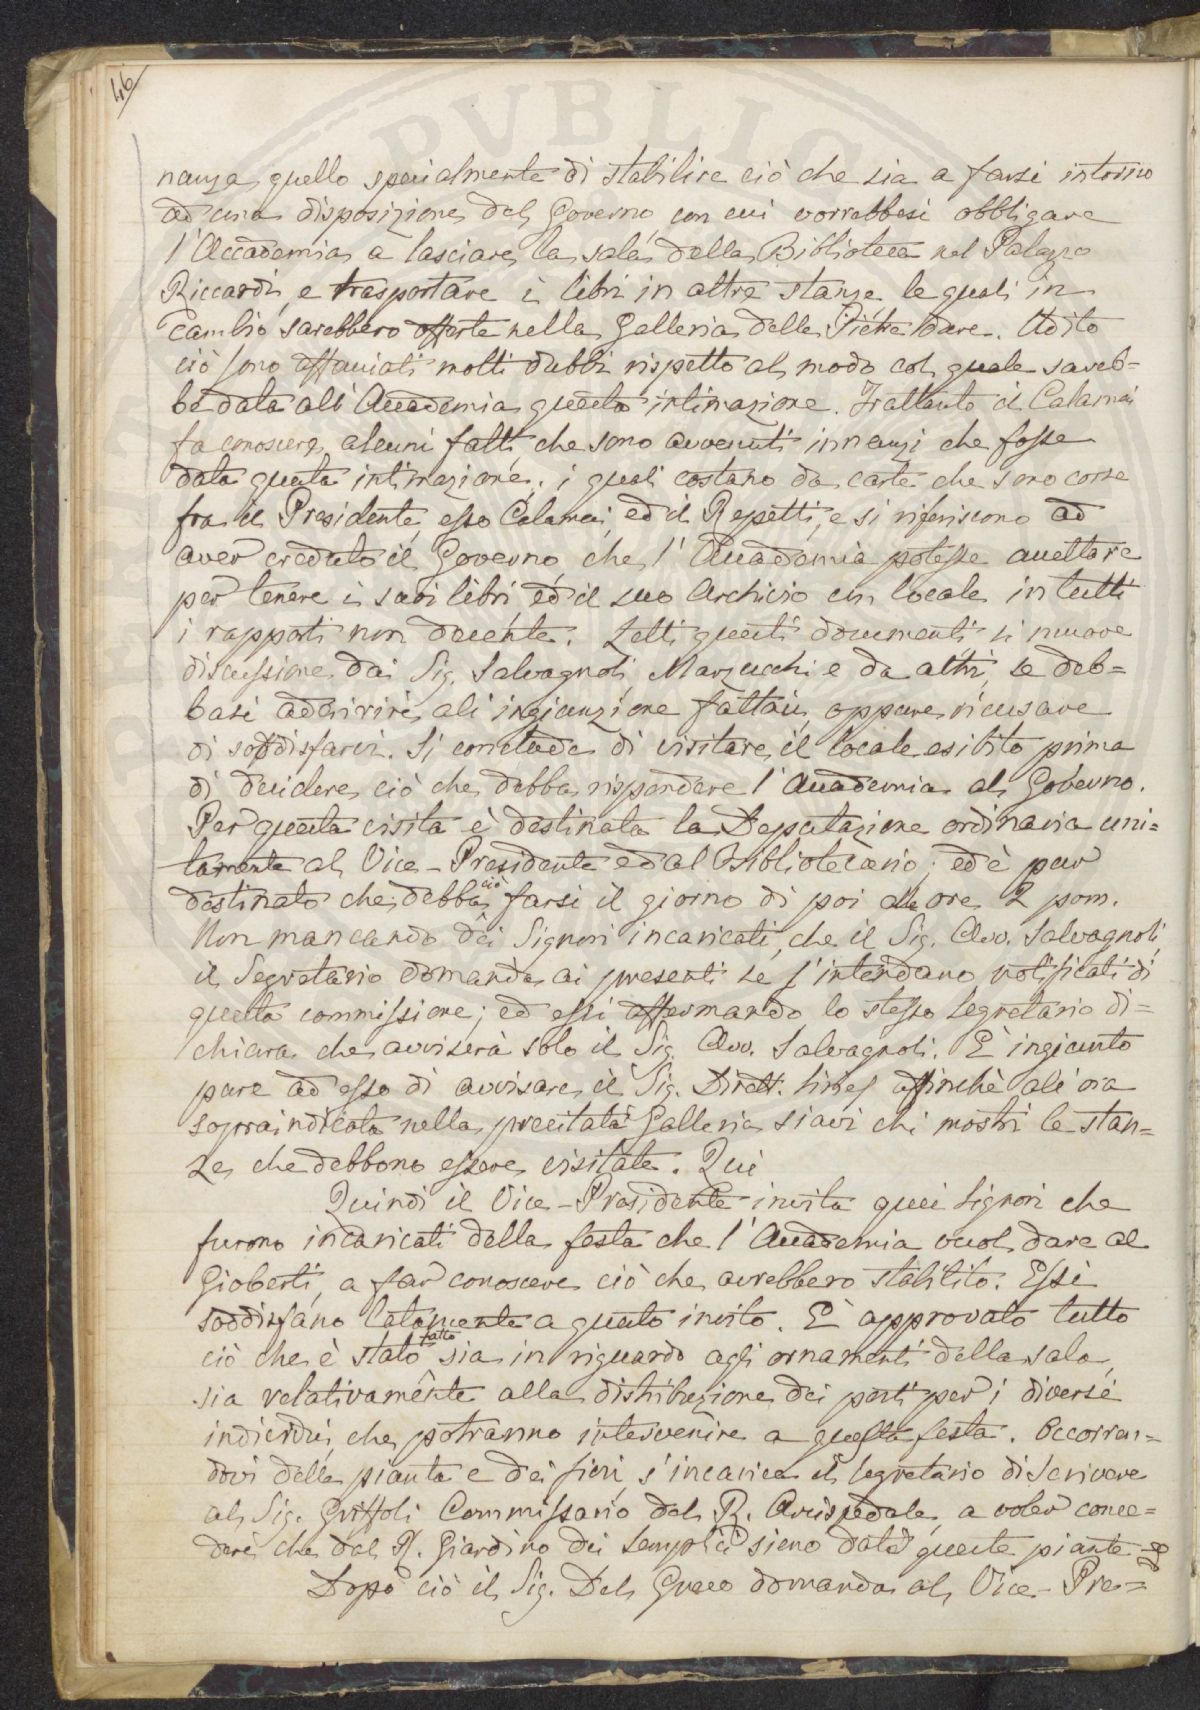 46
PUBLIC
nanza, quello specialmente di stabilire ciò che sia a farsi intorno
ad una disposizione del Governo con cui vorrebbesi obbligare
l'Accademia a lasciare la sala della Biblioteca nel Palazzo
Riccardi, e trasportare i libri in altre stanze le quali in
cambio sarebbero offerte nella Galleria delle Pietre dure. Udito
ciò sono affacciati molti dubbi rispetto al modo col quale sareb=
be data all'Accademia questa intimazione. Frattanto il Calamai
fa conoscere alcuni fatti che sono avvenuti innanzi che fosse
data questa intimazione, i quali costano da carte che sono corse
fra il Presidente, esso Calamai, ed il Repetti, e si riferiscono ad
aver creduto il Governo che l'Accademia potesse accettare
per tenere i suoi libri ed il suo Archivio un locale in tutti
i rapporti non decente. Letti questi documenti si muove
discussione dai Sig. Salvagnoli, Marzucchi e da altri, se deb=
basi aderire all'ingiunzione fattaci, oppure ricusare
di soddisfarvi. Si conclude di visitare il locale esibito prima
di decidere ciò che debba rispondere l'Accademia al Governo.
Per questa visita è destinata la Deputazione ordinaria uni=
tamente al Vice-Presidente ed al Bibliotecario; ed è pur
destinato che debba ciò farsi il giorno di poi alle ore 2 pom.
Non mancando dei Signori incaricati, che il Sig. Avv. Salvagnoli,
il Segretario domanda ai presenti se s'intendano notificati di
questa commissione; ed essi affermando lo stesso Segretario di=
chiara che avviserà solo il Sig. Avv. Salvagnoli. È ingiunto
pure ad esso di avvisare il Sig. Dirett. affinchè all'ora
sopraindicata nella precitata Galleria siavi chi mostri le stan=
ze che debbono essere visitate. Qui
Quindi il Vice-Presidente invita quei Signori che
furono incaricati della festa che l'Accademia vuol dare al
Gioberti, a far conoscere ciò che avrebbero stabilito. Essi
soddisfano latamente a questo invito. È approvato tutto
ciò che è stato fatto sia in riguardo agli ornamenti della sala,
sia relativamente alla distribuzione dei posti per i diversi
individui che potranno intervenire a questa festa. Occorren=
dovi delle piante e dei fiori, s'incarica il Segretario di scrivere
al Sig. Griffoli Commissario del R. Arcispedale, a voler conce=
dere che dal R. Giardino dei Semplici sieno date queste piante
Dopo ciò il Sig. Del Greco domanda al Vice-Pre=